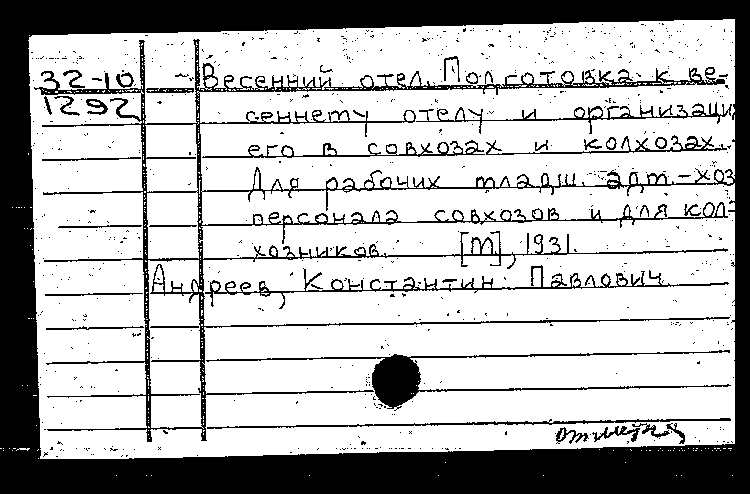 32-10 - Весенний отел. Подготовка к ве-
1292 сеннему отелу и организаци
его в совхозах и колхозах.
Для рабочих младш. адм.-хоз
персонала совхозов и для кол-
хозников. [М], 1931.
Андреев, Константин Павлович